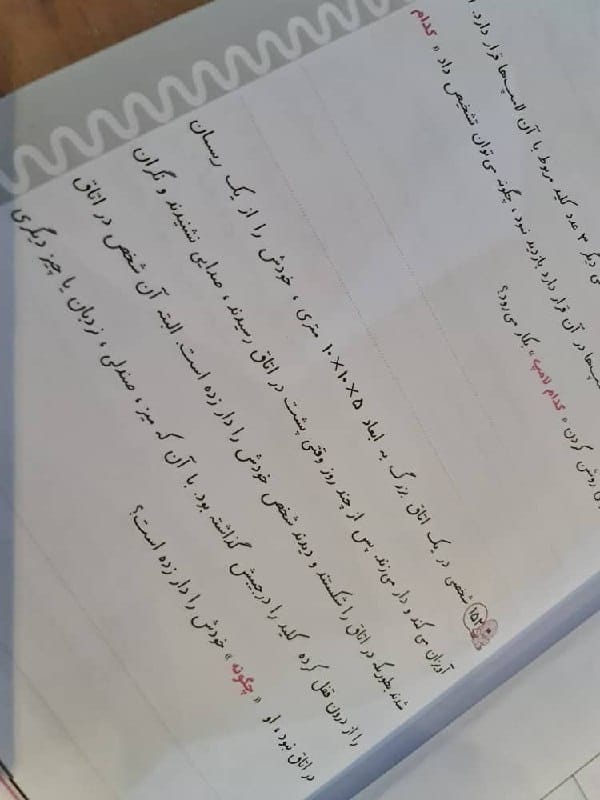 ی دیگر ۳ عدد کلید مربوط با آن لامپ‌ها قرار دارد.
پ‌ها در آن قرار دارد بازدید نبود، چگونه می‌توان تشخیص داد « کدام
ی روشن کردن « کدام لامپ » بکار می‌رود؟
۱۵۲ شخصی در یک اتاق بزرگ به ابعاد ۵×۱۰×۱۰ متری، خودش را از یک ریسمان
آویزان می کند و دار می‌زند. پس از چند روز وقتی پشت در اتاق رسیدند، صدایی نشنیدند و نگران
شدند بطوریکه در اتاق را شکستند و دیدند شخص خودش را دار زده است. البته آن شخص در اتاق
را از درون قفل کرده کلید را در جیبش گذاشته بود. با آن که میز، صندلی، نردبان یا چیز دیگری
در اتاق نبود، او « چگونه » خودش را دار زده است؟